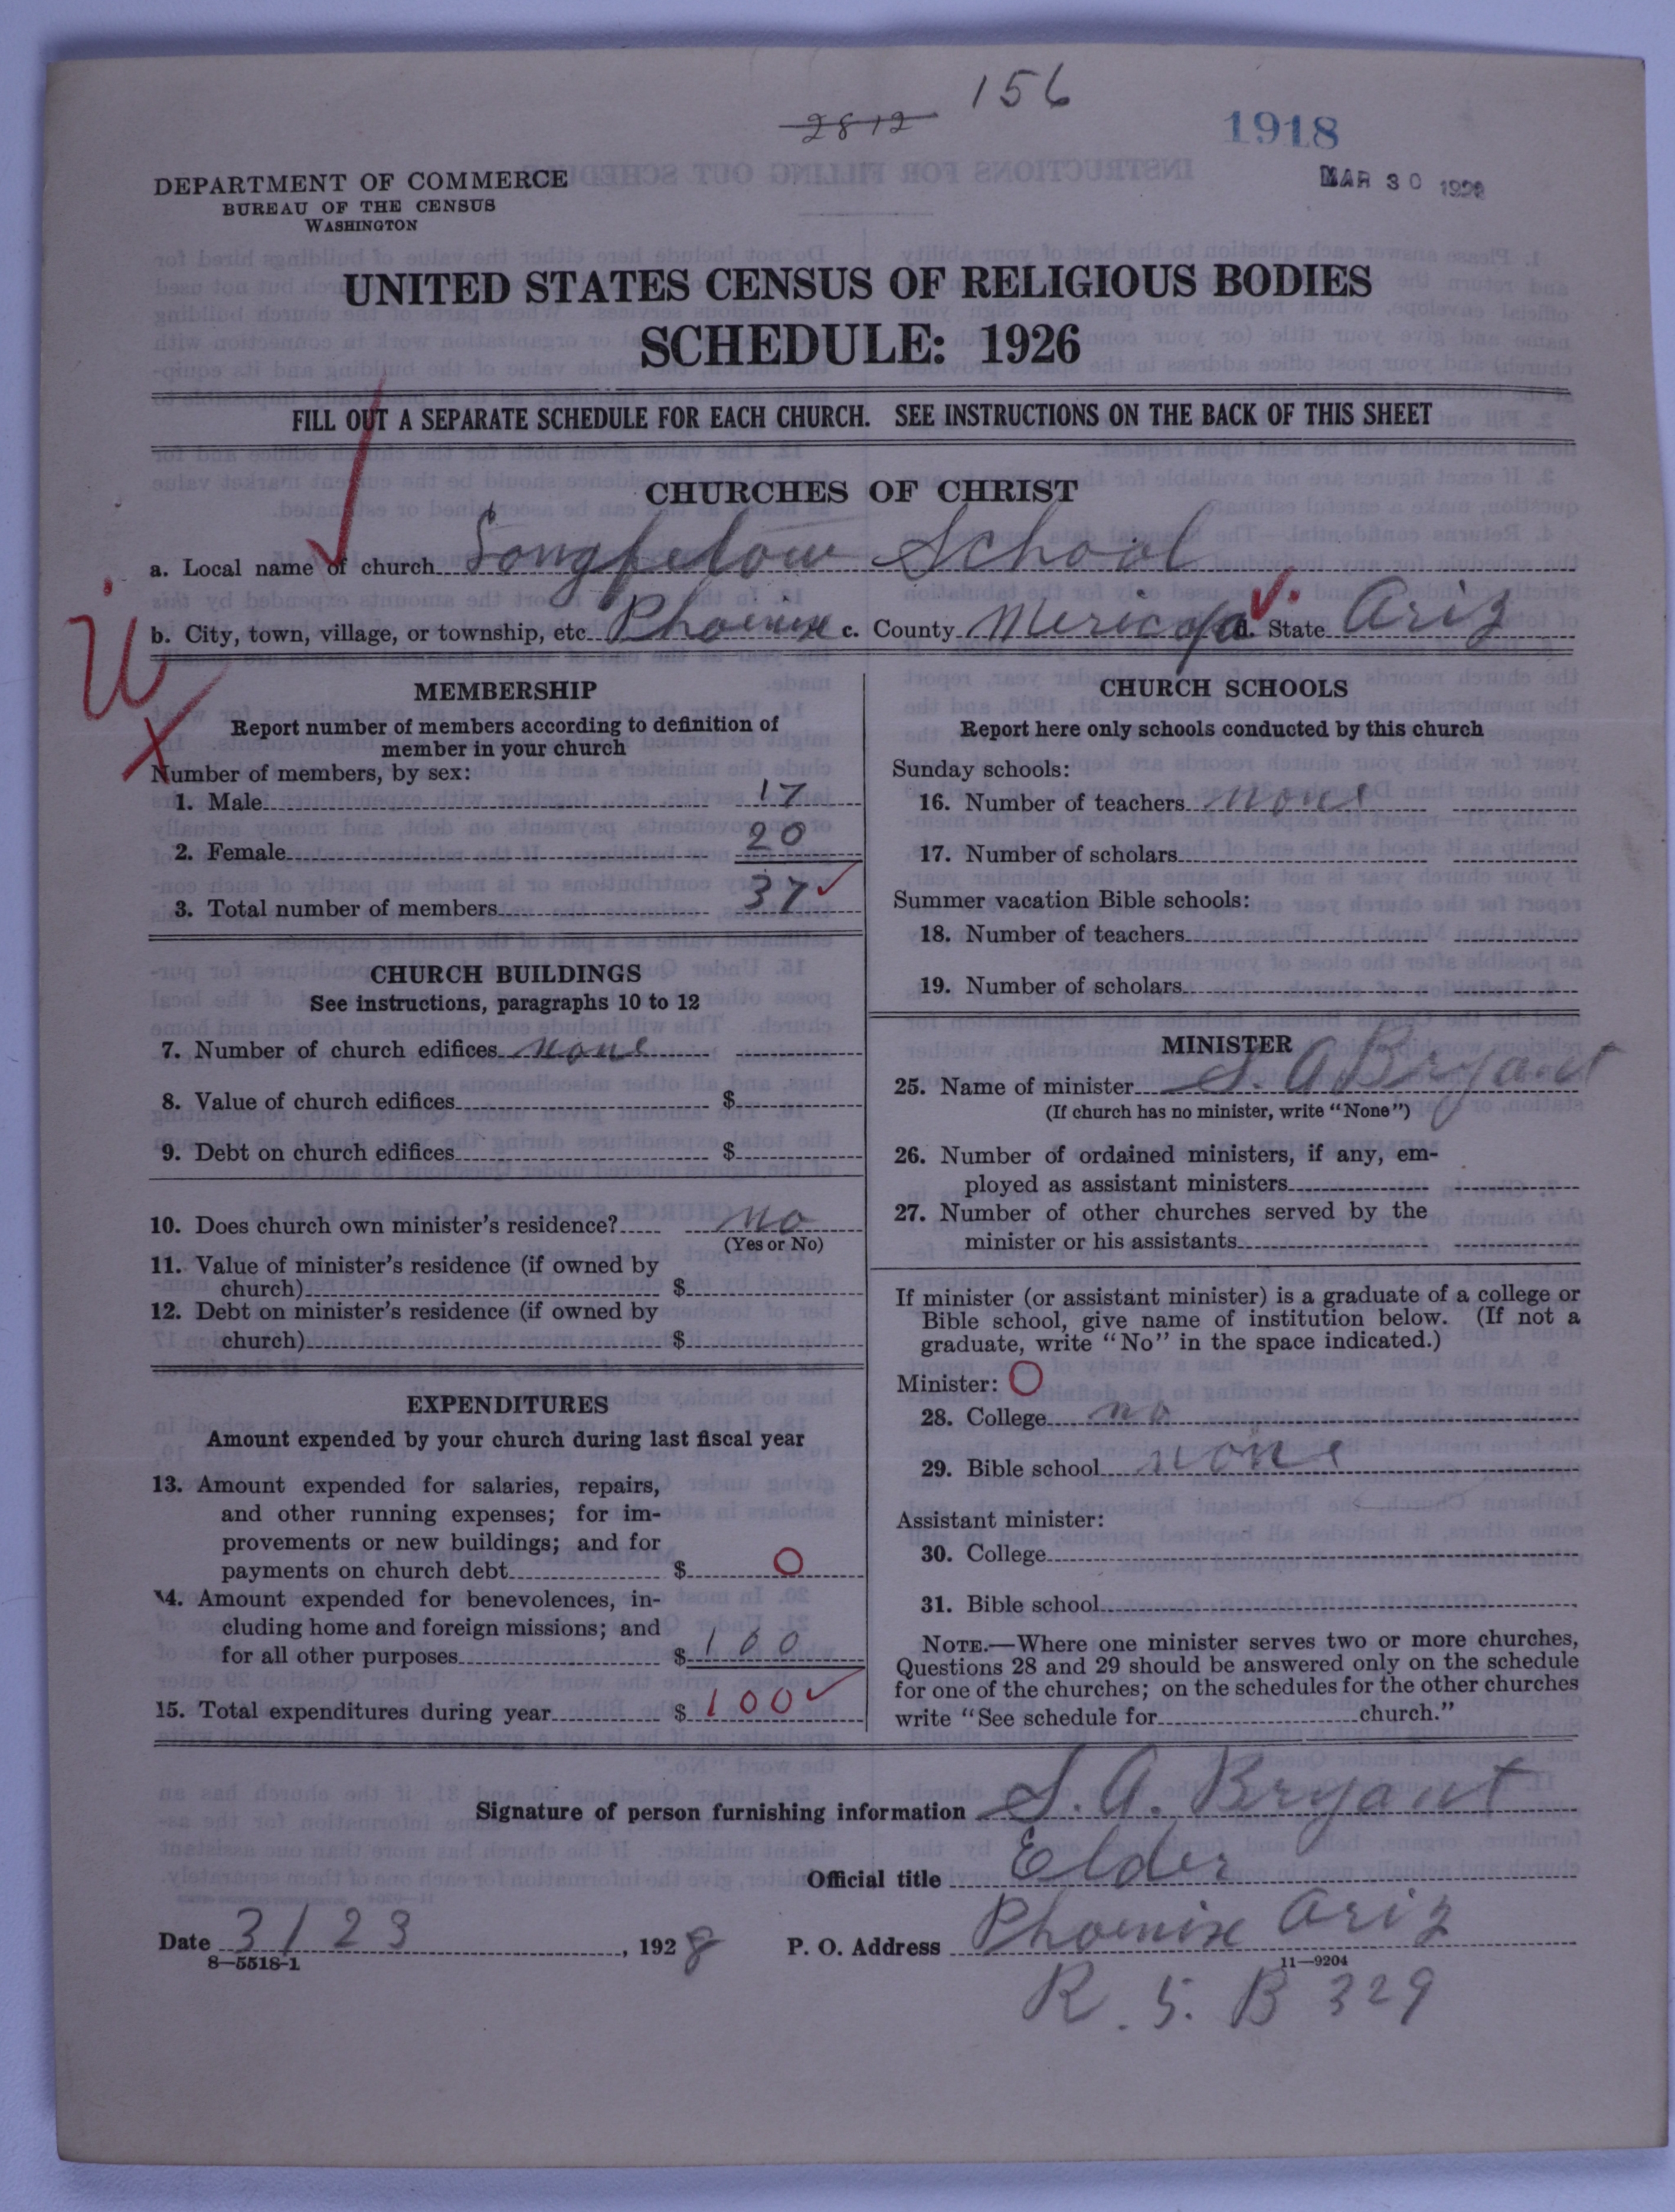 156
2812
1918
MAR 30 1928
DEPARTMENT OF COMMERCE
BUREAU OF THE CENSUS
WASHINGTON
UNITED STATES CENSUS OF RELIGIOUS BODIES
SCHEDULE: 1926
FILL OUT A SEPARATE SCHEDULE FOR EACH CHURCH. SEE INSTRUCTIONS ON THE BACK OF THIS SHEET
CHURCHES OF CHRIST
a. Local name of church Longfelow School
b. City, town, village, or township, etc. Phoenix c. County Mericopa d. State Ariz
MEMBERSHIP
Report number of members according to definition of
member in your church
Number of members, by sex:
1. Male 17
2. Female 20
3. Total number of members 37
CHURCH BUILDINGS
See instructions, paragraphs 10 to 12
7. Number of church edifices none
8. Value of church edifices $
9. Debt on church edifices $
10. Does church own minister's residence? no
(Yes or No)
11. Value of minister's residence (if owned by
church) $
12. Debt on minister's residence (if owned by
church) $
EXPENDITURES
Amount expended by your church during last fiscal year
13. Amount expended for salaries, repairs,
and other running expenses; for im-
provements or new buildings; and for
payments on church debt $ 0
14. Amount expended for benevolences, in-
cluding home and foreign missions; and
for all other purposes $ 100
15. Total expenditures during year $ 100
CHURCH SCHOOLS
Report here only schools conducted by this church
Sunday schools:
16. Number of teachers none
17. Number of scholars
Summer vacation Bible schools:
18. Number of teachers
19. Number of scholars
MINISTER
25. Name of minister S. A Bryant
(If church has no minister, write "None")
26. Number of ordained ministers, if any, em-
ployed as assistant ministers
27. Number of other churches served by the
minister or his assistants
If minister (or assistant minister) is a graduate of a college or
Bible school, give name of institution below. (If not a
graduate, write "No" in the space indicated.)
Minister: O
28. College no
29. Bible school none
Assistant minister:
30. College
31. Bible school
NOTE.—Where one minister serves two or more churches,
Questions 28 and 29 should be answered only on the schedule
for one of the churches; on the schedules for the other churches
write "See schedule for church."
Signature of person furnishing information S. A. Bryant
Official title Elder
Date 3/23, 1928 P. O. Address Phoenix Ariz
8—5518-1
11—9204
R. 5. B 329